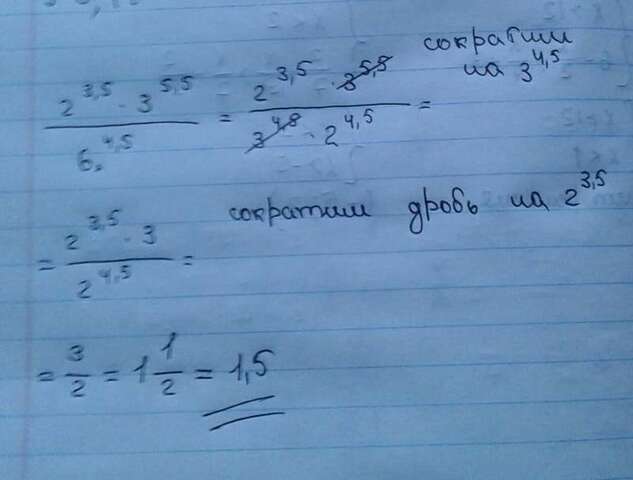 2^3,5 · 3^5,5 / 6^4,5 = 2^3,5 · 3^5,5 / 3^4,5 · 2^4,5 = сократим на 3^4,5
= 2^3,5 · 3 / 2^4,5 = сократим дробь на 2^3,5
= 3/2 = 1 1/2 = 1,5